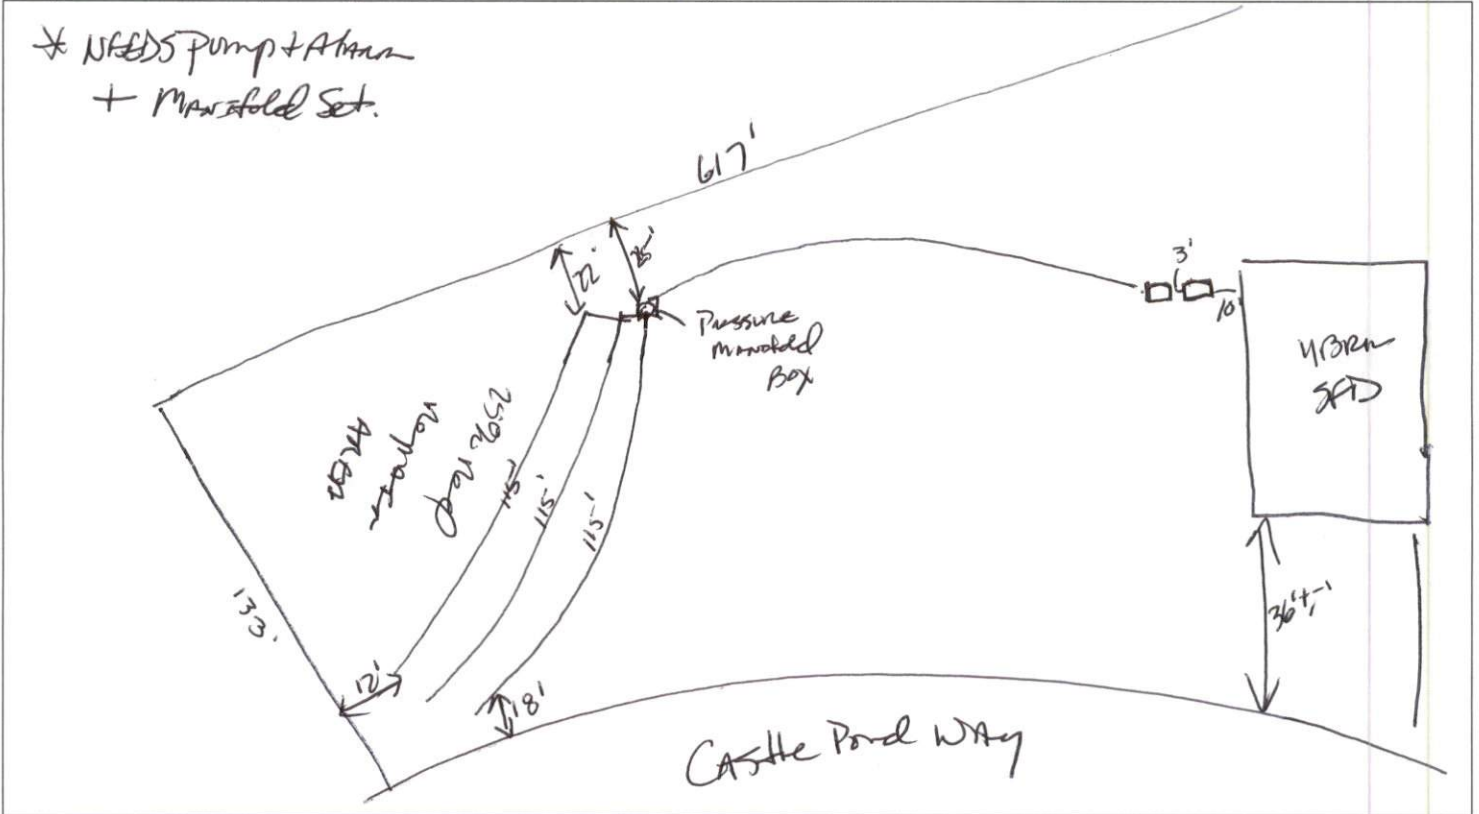 * NEEDS Pump + Alarm
+ Manifold Set.
617'
22'
25'
3'
10'
Pressure
Manifold
Box
4BRM
SFD
25% Red
Repair
AREA
115'
115'
115'
133'
12'
18'
36'+,-'
Castle Pond Way